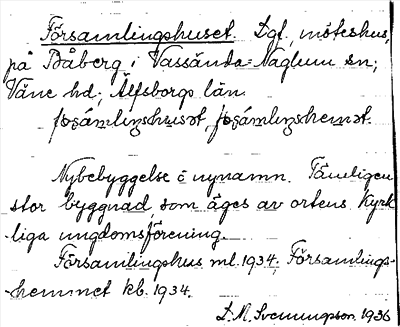 Församlingshuset. Lgl, möteshus,
på Båberg i Vassända-Naglum sn;
Väne hd; Älfsborgs län.
Nybebyggelse o nynamn. Tämligen
stor byggnad, som äges av ortens kyrk
liga ungdomsförening.
Församlingshus ml. 1934, Församlings-
hemmet kb. 1934.
D. M. Svenungsson. 1936